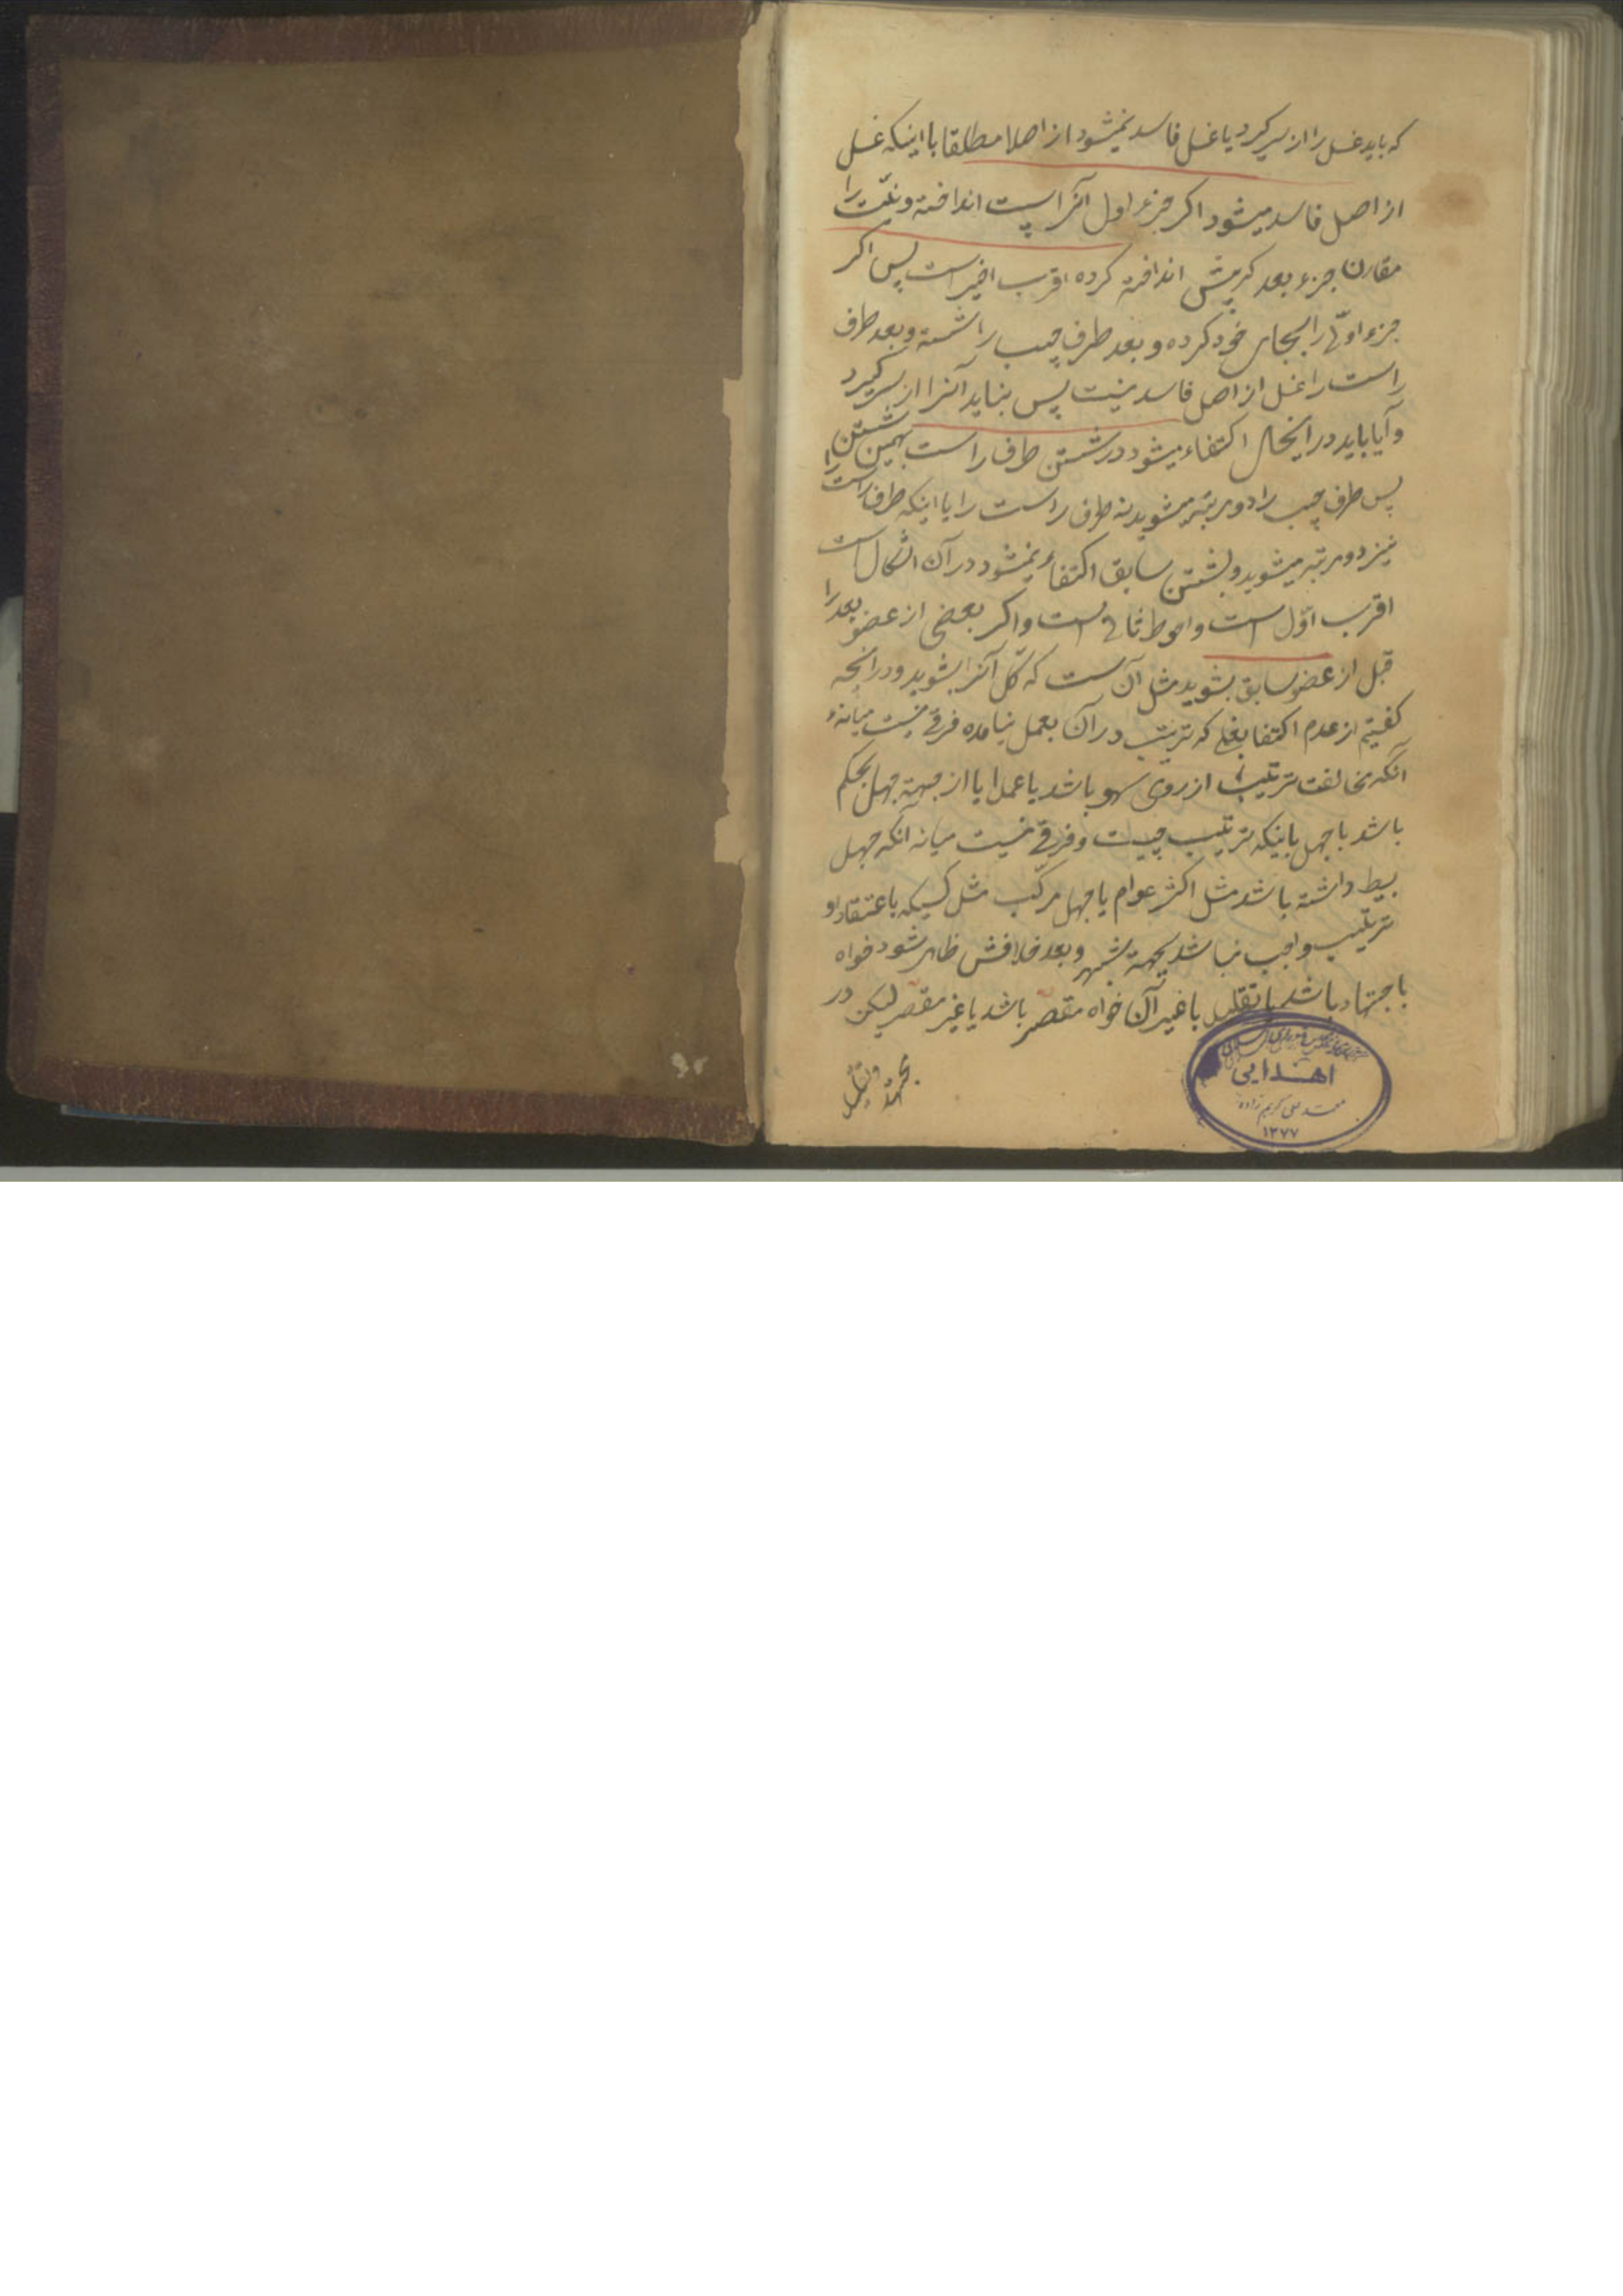 که باید غسل را از سر کیرد یا غسل فاسد نمیشود از اصلا مطلقا با اینکه غسل
از اصل فاسد میشود اکر جزء اول آنرا پست انداخته و نیّت را
مقارن جزء بعد که پیش انداخته کرده اقرب اخیر است پس اکر
جزء اوّل را بجای خود کرده و بعد طرف چپ را شسته و بعد طرف
راست را غسل از اصل فاسد نیست پس نباید آنرا از سر کیرد
و آیا باید در اینحال اکتفاء میشود در شستن طرف راست بهمین شستن
پس طرف چپ را دو مرتبه میشوید نه طرف راست را یا اینکه طرف راست را
نیز دو مرتبه میشوید و بشستن سابق اکتفاء نمیشود در آن اشکال است
اقرب اوّل است و احوط ثانی است و اکر بعضی از عضو بعد را
قبل از عضو سابق بشوید مثل آن است که کل آنرا بشوید و در آنچه
کفتیم از عدم اکتفا بغسلی که ترتیب در آن بعمل نیامده فرقی نیست میانهء
آنکه مخالفت ترتیب از روی سهو باشد یا عمدا یا از جهة جهل بحکم
باشد یا جهل باینکه ترتیب چیست و فرقی نیست میانه آنکه جهل
بسیط داشته باشد مثل اکثر عوام یا جهل مرکّب مثل کسیکه باعتقاد او
ترتیب واجب نباشد بجهة شبهه و بعد خلافش ظاهر شود خواه
باجتهاد باشد یا تقلید یا غیر آن خواه مقصر باشد یا غیر مقصر لیکن در
اهدایی
محمد علی کریم زاده
۱۳۷۷